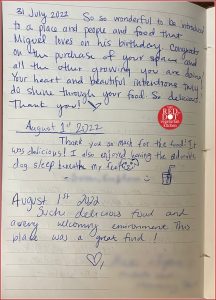 31 July 2022
So so wonderful to be introduced
to a place and people and food that
Miguel loves on his birthday. Congrats
on the purchase of your space and
all the other growing you are doing
Your heart and beautiful intentions truly
do shine through your food. So delicious
Thank you!
RED
DOT
August 1st 2022
Thank you so much for the food! It
was delicious! I also enjoyed having the adorable
dog sleep beneath my feet
August 1st 2022
Such delicious food and
a very welcoming environment. This
place was a great find!